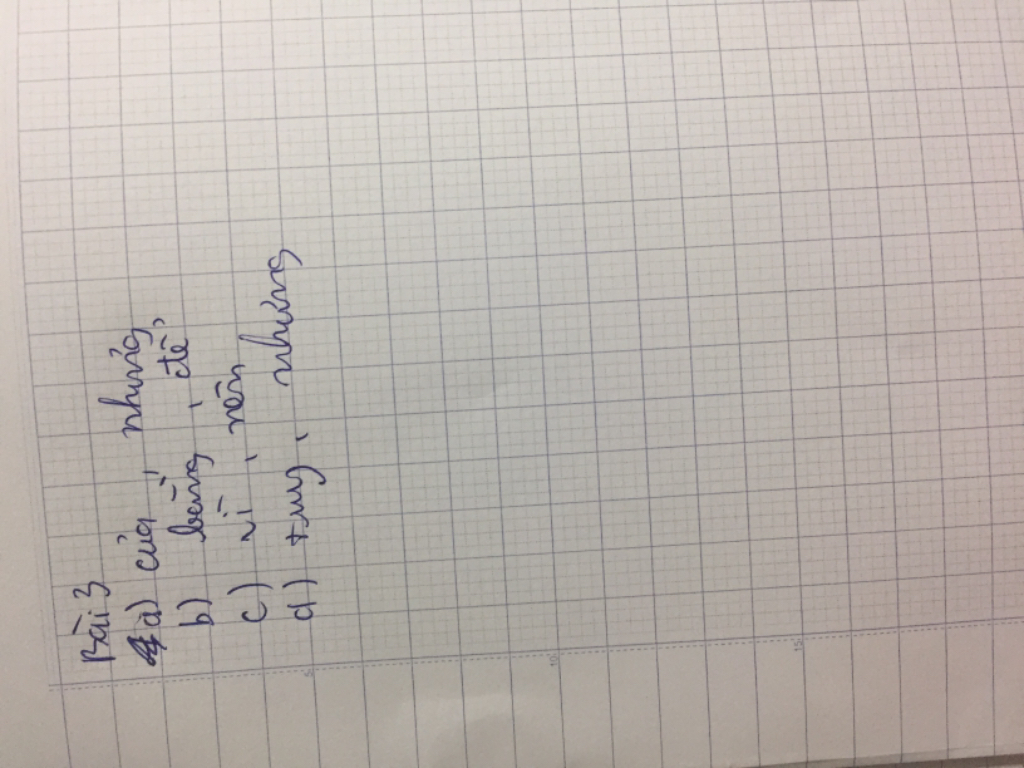 Bài 3
a) của, những
b) bằng, để,
c) vì, nên
d) tuy, nhưng
5
10
15